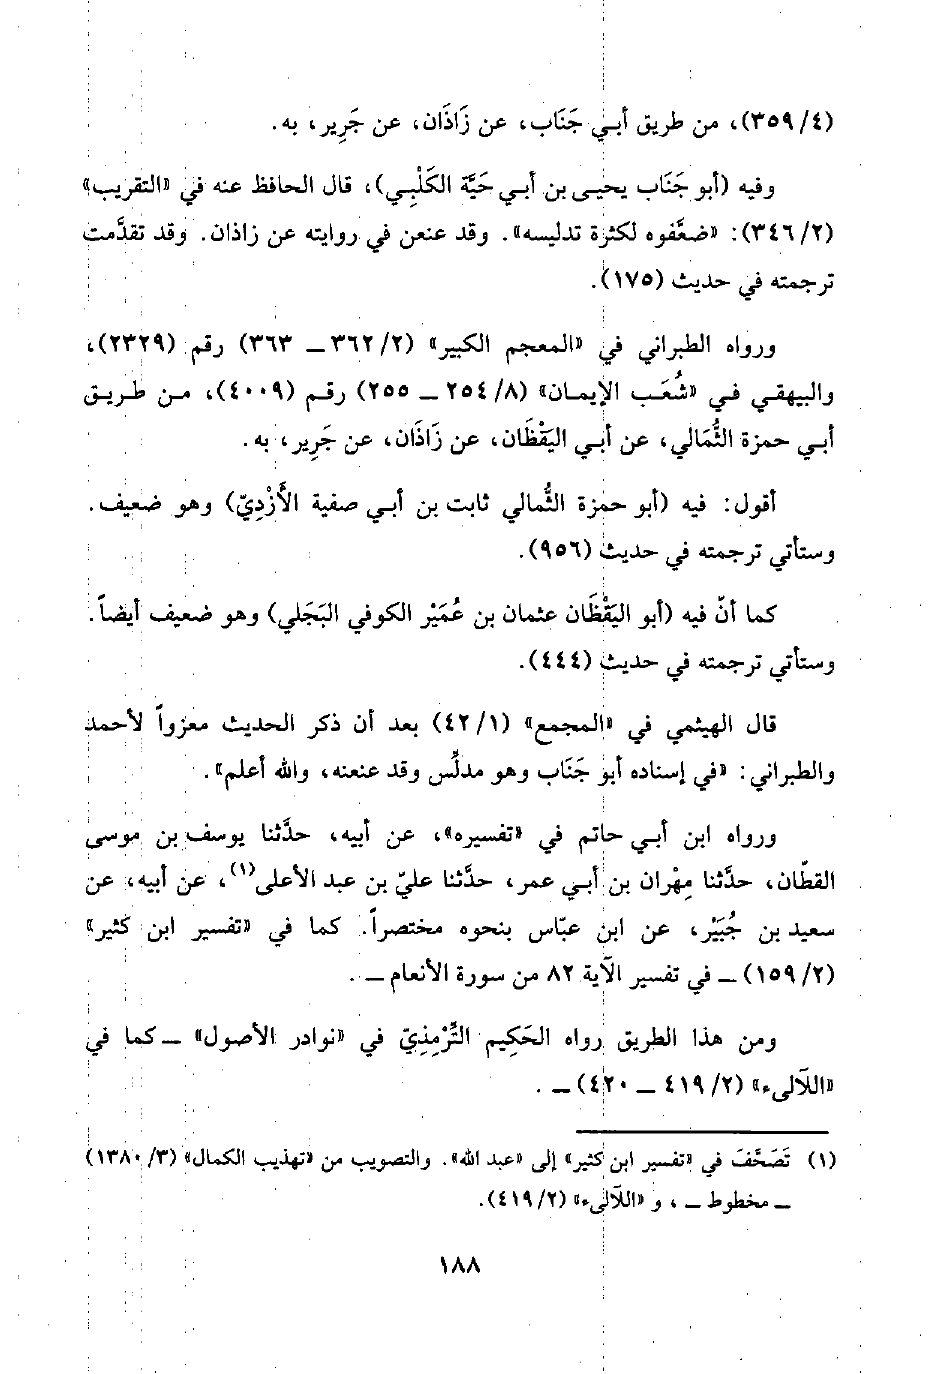 (٣٥٩/٤)، من طريق أبي جَنَاب، عن زَاذَان، عن جَرِير، به.
وفيه (أبو جَنَاب يحيى بن أبي حَيَّة الكَلْبِي)، قال الحافظ عنه في «التقريب»
(٣٤٦/٢): «ضعَّفوه لكثرة تدليسه». وقد عنعن في روايته عن زاذان. وقد تقدَّمت
ترجمته في حديث (١٧٥).
ورواه الطبراني في «المعجم الكبير» (٣٦٢/٢ ـ ٣٦٣) رقم (٢٣٢٩)،
والبيهقي في «شُعَب الإِيمان» (٢٥٤/٨ ـ ٢٥٥) رقم (٤٠٠٩)، من طريق
أبي حمزة الثُّمَالي، عن أبي اليَقْظَان، عن زَاذَان، عن جَرِير، به.
أقول: فيه (أبو حمزة الثُّمالي ثابت بن أبي صفية الأَزْدِيّ) وهو ضعيف.
وستأتي ترجمته في حديث (٩٥٦).
كما أنّ فيه (أبو اليَقْظَان عثمان بن عُمَيْر الكوفي البَجَلي) وهو ضعيف أيضاً.
وستأتي ترجمته في حديث (٤٤٤).
قال الهيثمي في «المجمع» (٤٢/١) بعد أن ذكر الحديث معزواً لأحمد
والطبراني: «في إسناده أبو جَنَاب وهو مدلِّس وقد عنعنه، والله أعلم».
ورواه ابن أبي حاتم في «تفسيره»، عن أبيه، حدَّثنا يوسف بن موسى
القطّان، حدَّثنا مِهْران بن أبي عمر، حدَّثنا عليّ بن عبد الأعلى(١)، عن أبيه، عن
سعيد بن جُبَيْر، عن ابن عبّاس بنحوه مختصراً. كما في «تفسير ابن كثير»
(١٥٩/٢) ـ في تفسير الآية ٨٢ من سورة الأنعام ـ .
ومن هذا الطريق رواه الحَكِيم التِّرْمِذِيّ في «نوادر الأصول» ـ كما في
«اللآلىء» (٤١٩/٢ ـ ٤٢٠) ـ .
(١) تَصَحَّفَ في «تفسير ابن كثير» إلى «عبد الله». والتصويب من «تهذيب الكمال» (١٣٨٠/٣)
ـ مخطوط ـ ، و «اللآلىء» (٤١٩/٢).
١٨٨